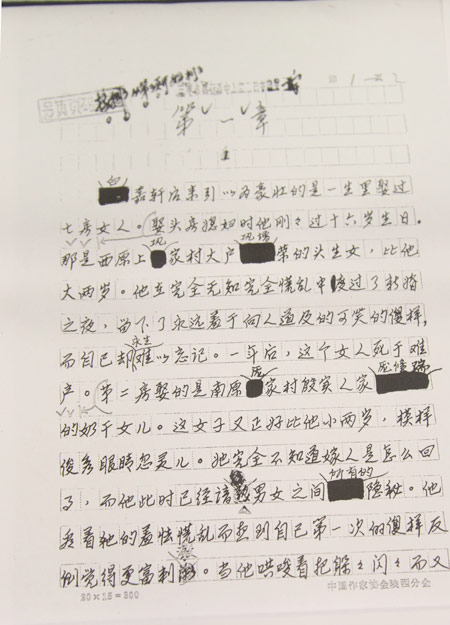 第一章
1
白嘉轩后来引以为豪壮的是一生里娶过
七房女人。娶头房媳妇时他刚々过十六岁生日。
那是西原上巩家村大户巩增荣的头生女，比他
大两岁。他在完全无知完全慌乱中度过了新婚
之夜，留下了永远羞于向人道及的可笑的傻样，
而自己却永生难以忘记。一年后，这个女人死于难
产。第二房娶的是南原庞家村殷实人家庞修瑞
的奶干女儿。这女子又正好比他小两岁，模样
俊秀眼睛忽灵儿。她完全不知道嫁人是怎么回
事，而他此时已经谙熟男女之间所有的隐秘。他
看着她的羞怯慌乱而想到自己第一次的傻样反
倒觉得更富刺激。当他哄唆着把躲々闪々而又
20×15=300
中国作家协会陕西分会